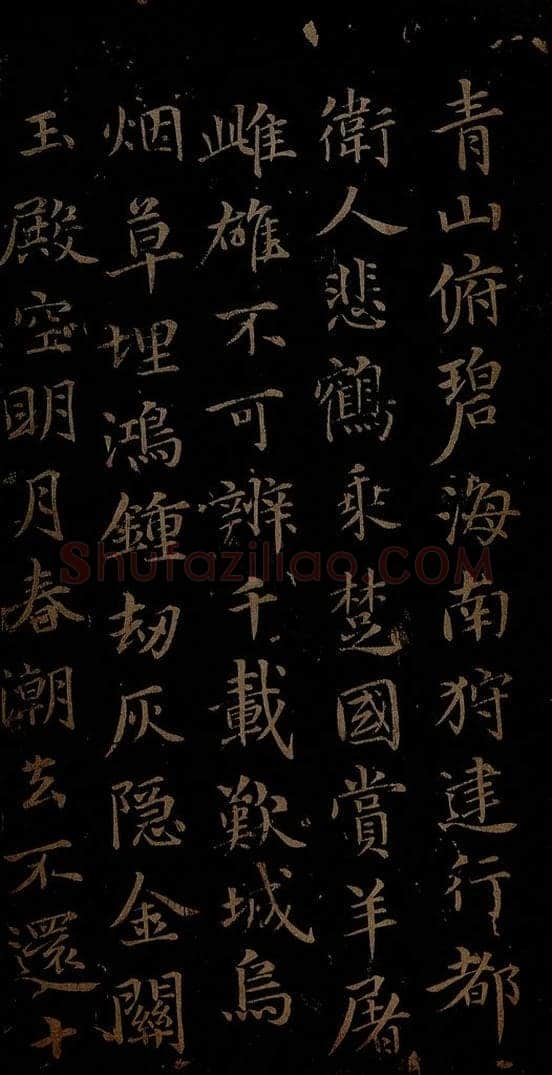 青山俯碧海南狩建行都
衛人悲鶴乘楚國賞羊屠
雌雄不可辨千載歎城烏
烟草埋鴻鍾劫灰隐金關
玉殿空明月春潮去不還十
Shufaziliao.COM